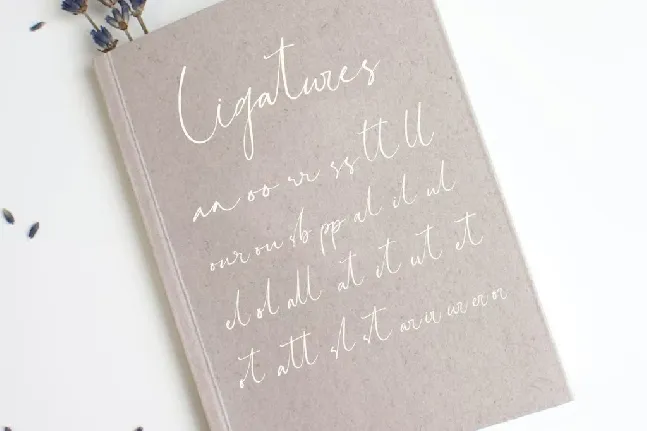 Ligatures
an oo rr ss tt ll
our ou sb pp al il ul
el ol all at it ut et
ot att sl st ar ir ur er or